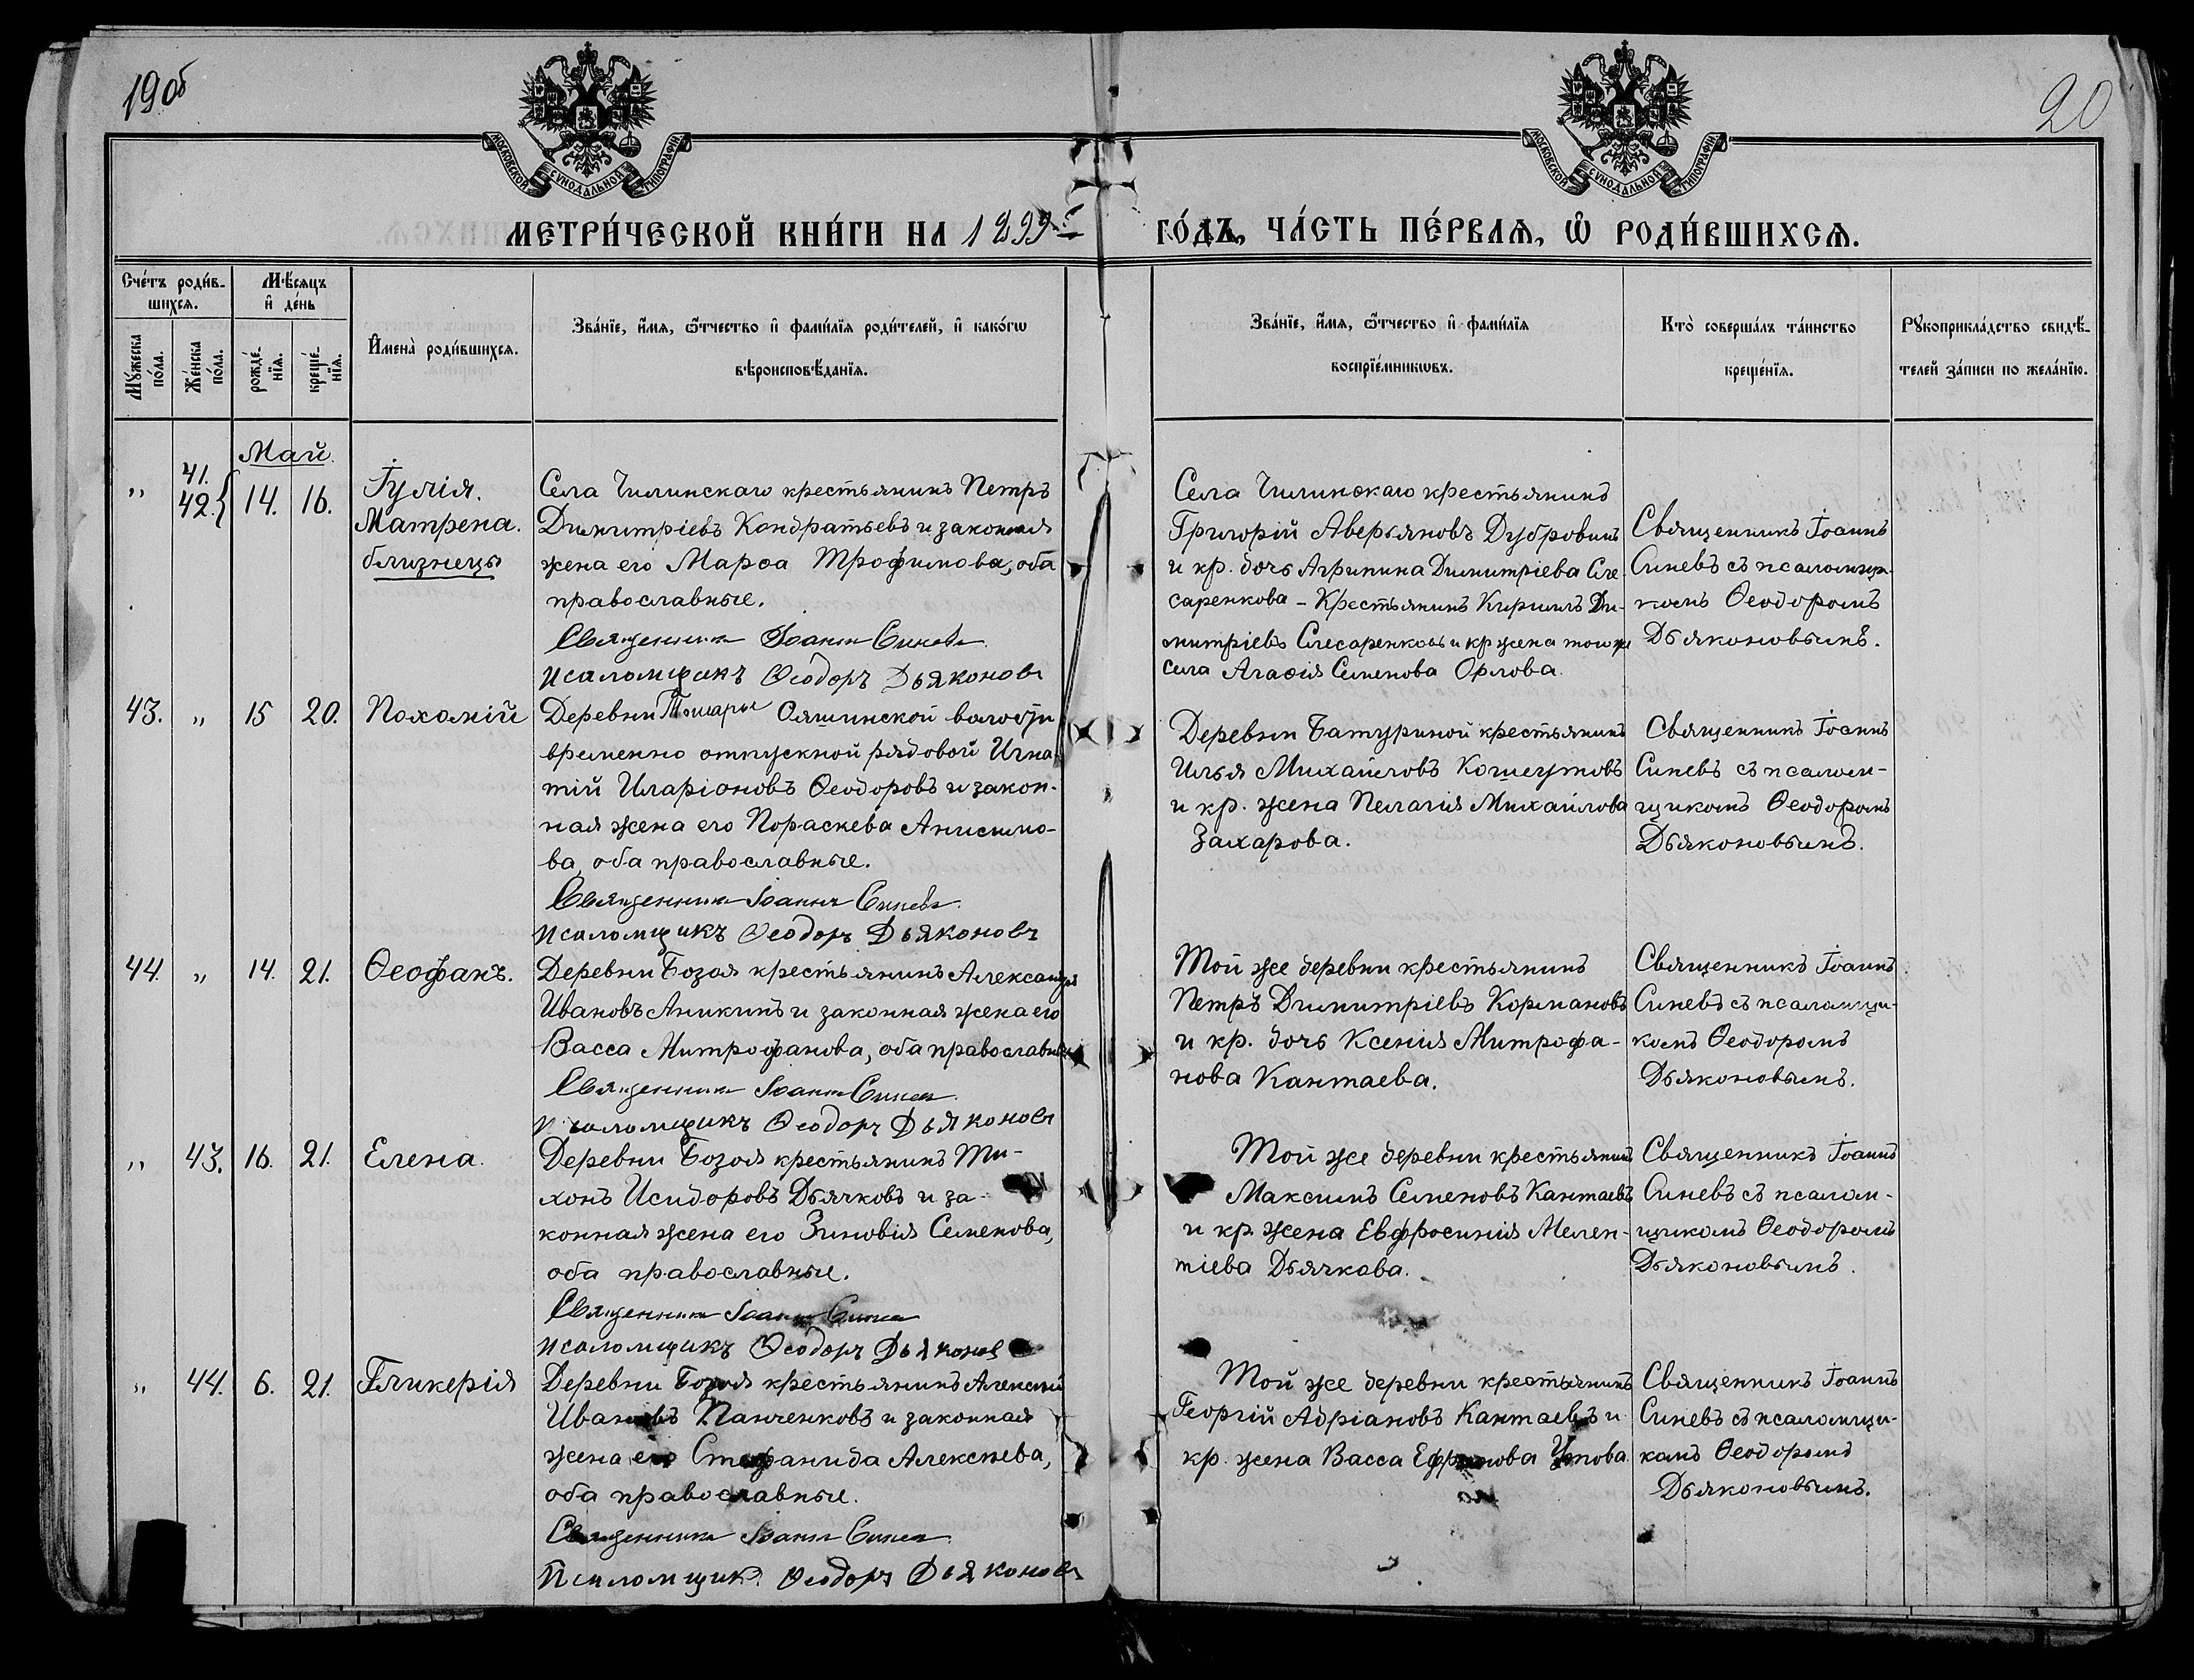 19об
20
МОСКОВСКОЙ СѴНОДАЛЬНОЙ ТИПОГРАФІИ
МОСКОВСКОЙ СѴНОДАЛЬНОЙ ТИПОГРАФІИ
МЕТРИ́ЧЕСКОЙ КНИ́ГИ НА 1899й
ГО́ДЪ, ЧА́СТЬ ПЕ́РВАѦ, Ѡ РОДИ́ВШИХСѦ.
Сче́тъ роди́в-
шихсѧ.
Мѣ́сѧцъ
и҆ де́нь
Мꙋ́жеска
по́ла.
Же́нска
по́ла.
рожде́-
нїѧ.
креще́-
нїѧ.
И҆мена̀ роди́вшихсѧ.
Зва́нїе, и҆́мѧ, ѻ҆́тчество и҆ фами́лїѧ роди́телей, и҆ како́гѡ
вѣроисповѣ́данїѧ.
Зва́нїе, и҆́мѧ, ѻ҆́тчество и҆ фами́лїѧ
воспрїе́мникѡвъ.
Кто̀ соверша́лъ та́инство
креще́нїѧ.
Рꙋкоприкла́дство свидѣ́-
телей за́писи по жела́нїю.
Май.
„ 41. 42. 14. 16.
Іулія.
Матрена.
близнецы
Села Чилинскаго крестьянинъ Петръ
Димитріевъ Кондратьевъ и законная
жена его Марѳа Трофимова, оба
православные.
Священникъ Іоаннъ Синевъ
Псаломщикъ Ѳеодоръ Дьяконовъ
Села Чилинскаго крестьянинъ
Григорій Аверьяновъ Дубровинъ
и кр. дочь Агрипина Димитріева Сле-
саренкова – Крестьянинъ Кирилъ Ди-
митріевъ Слесаренковъ и кр жена того же
села Агаѳія Семенова Орлова.
Священникъ Іоаннъ
Синевъ съ псаломщи-
комъ Ѳеодоромъ
Дьяконовымъ.
43. „ 15 20. Похомій
Деревни Тошары Ояшинской волости
временно отпускной рядовой Игна-
тій Иларіоновъ Ѳеодоровъ и закон-
ная жена его Пораскева Анисимо-
ва, оба православные.
Священникъ Іоаннъ Синевъ
Псаломщикъ Ѳеодоръ Дьяконовъ
Деревни Батуриной крестьянинъ
Илья Михайловъ Кошегутовъ
и кр. жена Пелагія Михаилова
Захарова.
Священникъ Іоаннъ
Синевъ съ псалом-
щикомъ Ѳеодоромъ
Дьяконовымъ.
44. „ 14. 21. Ѳеофанъ.
Деревни Базоя крестьянинъ Александръ
Ивановъ Аникинъ и законная жена его
Васса Митрофанова, оба православные
Священникъ Іоаннъ Синевъ
Псаломщикъ Ѳеодоръ Дьяконовъ
Той же деревни крестьянинъ
Петръ Димитріевъ Кормановъ
и кр. дочь Ксенія Митрофа-
нова Кантаева.
Священникъ Іоаннъ
Синевъ съ псаломщи-
комъ Ѳеодоромъ
Дьяконовымъ.
„ 43. 16. 21. Елена.
Деревни Базоя крестьянинъ Ти-
хонъ Исидоровъ Дьячковъ и за-
конная жена его Зиновія Семенова,
оба православные.
Священникъ Іоаннъ Синевъ
Псаломщикъ Ѳеодоръ Дьяконовъ
Той же деревни крестьянинъ
Максимъ Семеновъ Кантаевъ
и кр. жена Евфросинія Мелен-
тіева Дьячкова.
Священникъ Іоаннъ
Синевъ съ псалом-
щикомъ Ѳеодоромъ
Дьяконовымъ.
„ 44. 6. 21. Гликерія
Деревни Базоя крестьянинъ Алексѣй
Ивановъ Панченковъ и законная
жена его Стефанида Алексѣева,
оба православные.
Священникъ Іоаннъ Синевъ
Псаломщикъ Ѳеодоръ Дьяконовъ
Той же деревни крестьянинъ
Георгій Адріановъ Кантаевъ и
кр. жена Васса
Священникъ Іоаннъ
Синевъ съ псаломщи-
комъ Ѳеодоромъ
Дьяконовымъ.